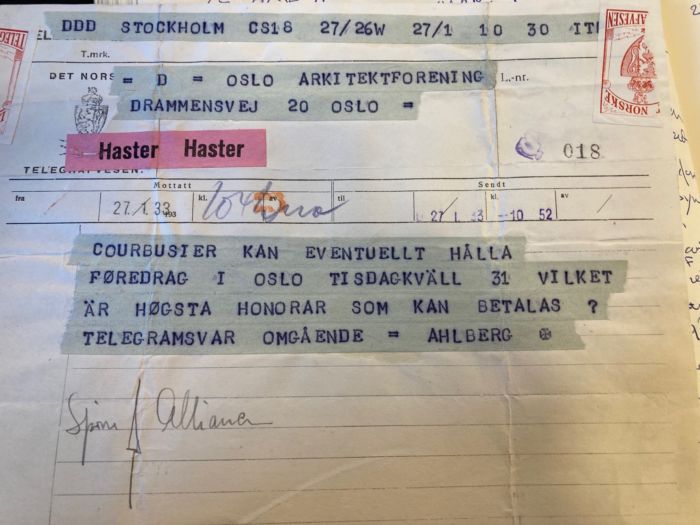 DDD STOCKHOLM CS18 27/26W 27/1 10 30 IT
T.mrk.
DET NORS
= D = OSLO ARKITEKTFORENING
L.-nr.
DRAMMENSVEJ 20 OSLO =
Haster Haster
018
TELEGRAFVESEN.
Mottatt
Sendt
fra
kl.
av
til
kl.
av
27/1 33
193
27/1 33 -10 52
COURBUSIER KAN EVENTUELLT HÅLLA
FØREDRAG I OSLO TISDAGKVÄLL 31 VILKET
ÄR HØGSTA HONORAR SOM KAN BETALAS ?
TELEGRAMSVAR OMGÅENDE = AHLBERG
NORSKE